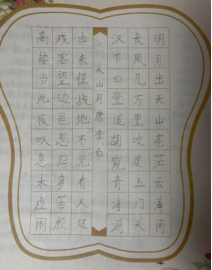 明月出天山苍茫云海间
长风几万里吹度玉门关
汉下白登道胡窥青海湾
关山月唐李白
由来征战地不见有人还
戍客望边色思归多苦颜
高楼当此夜叹息未应闲